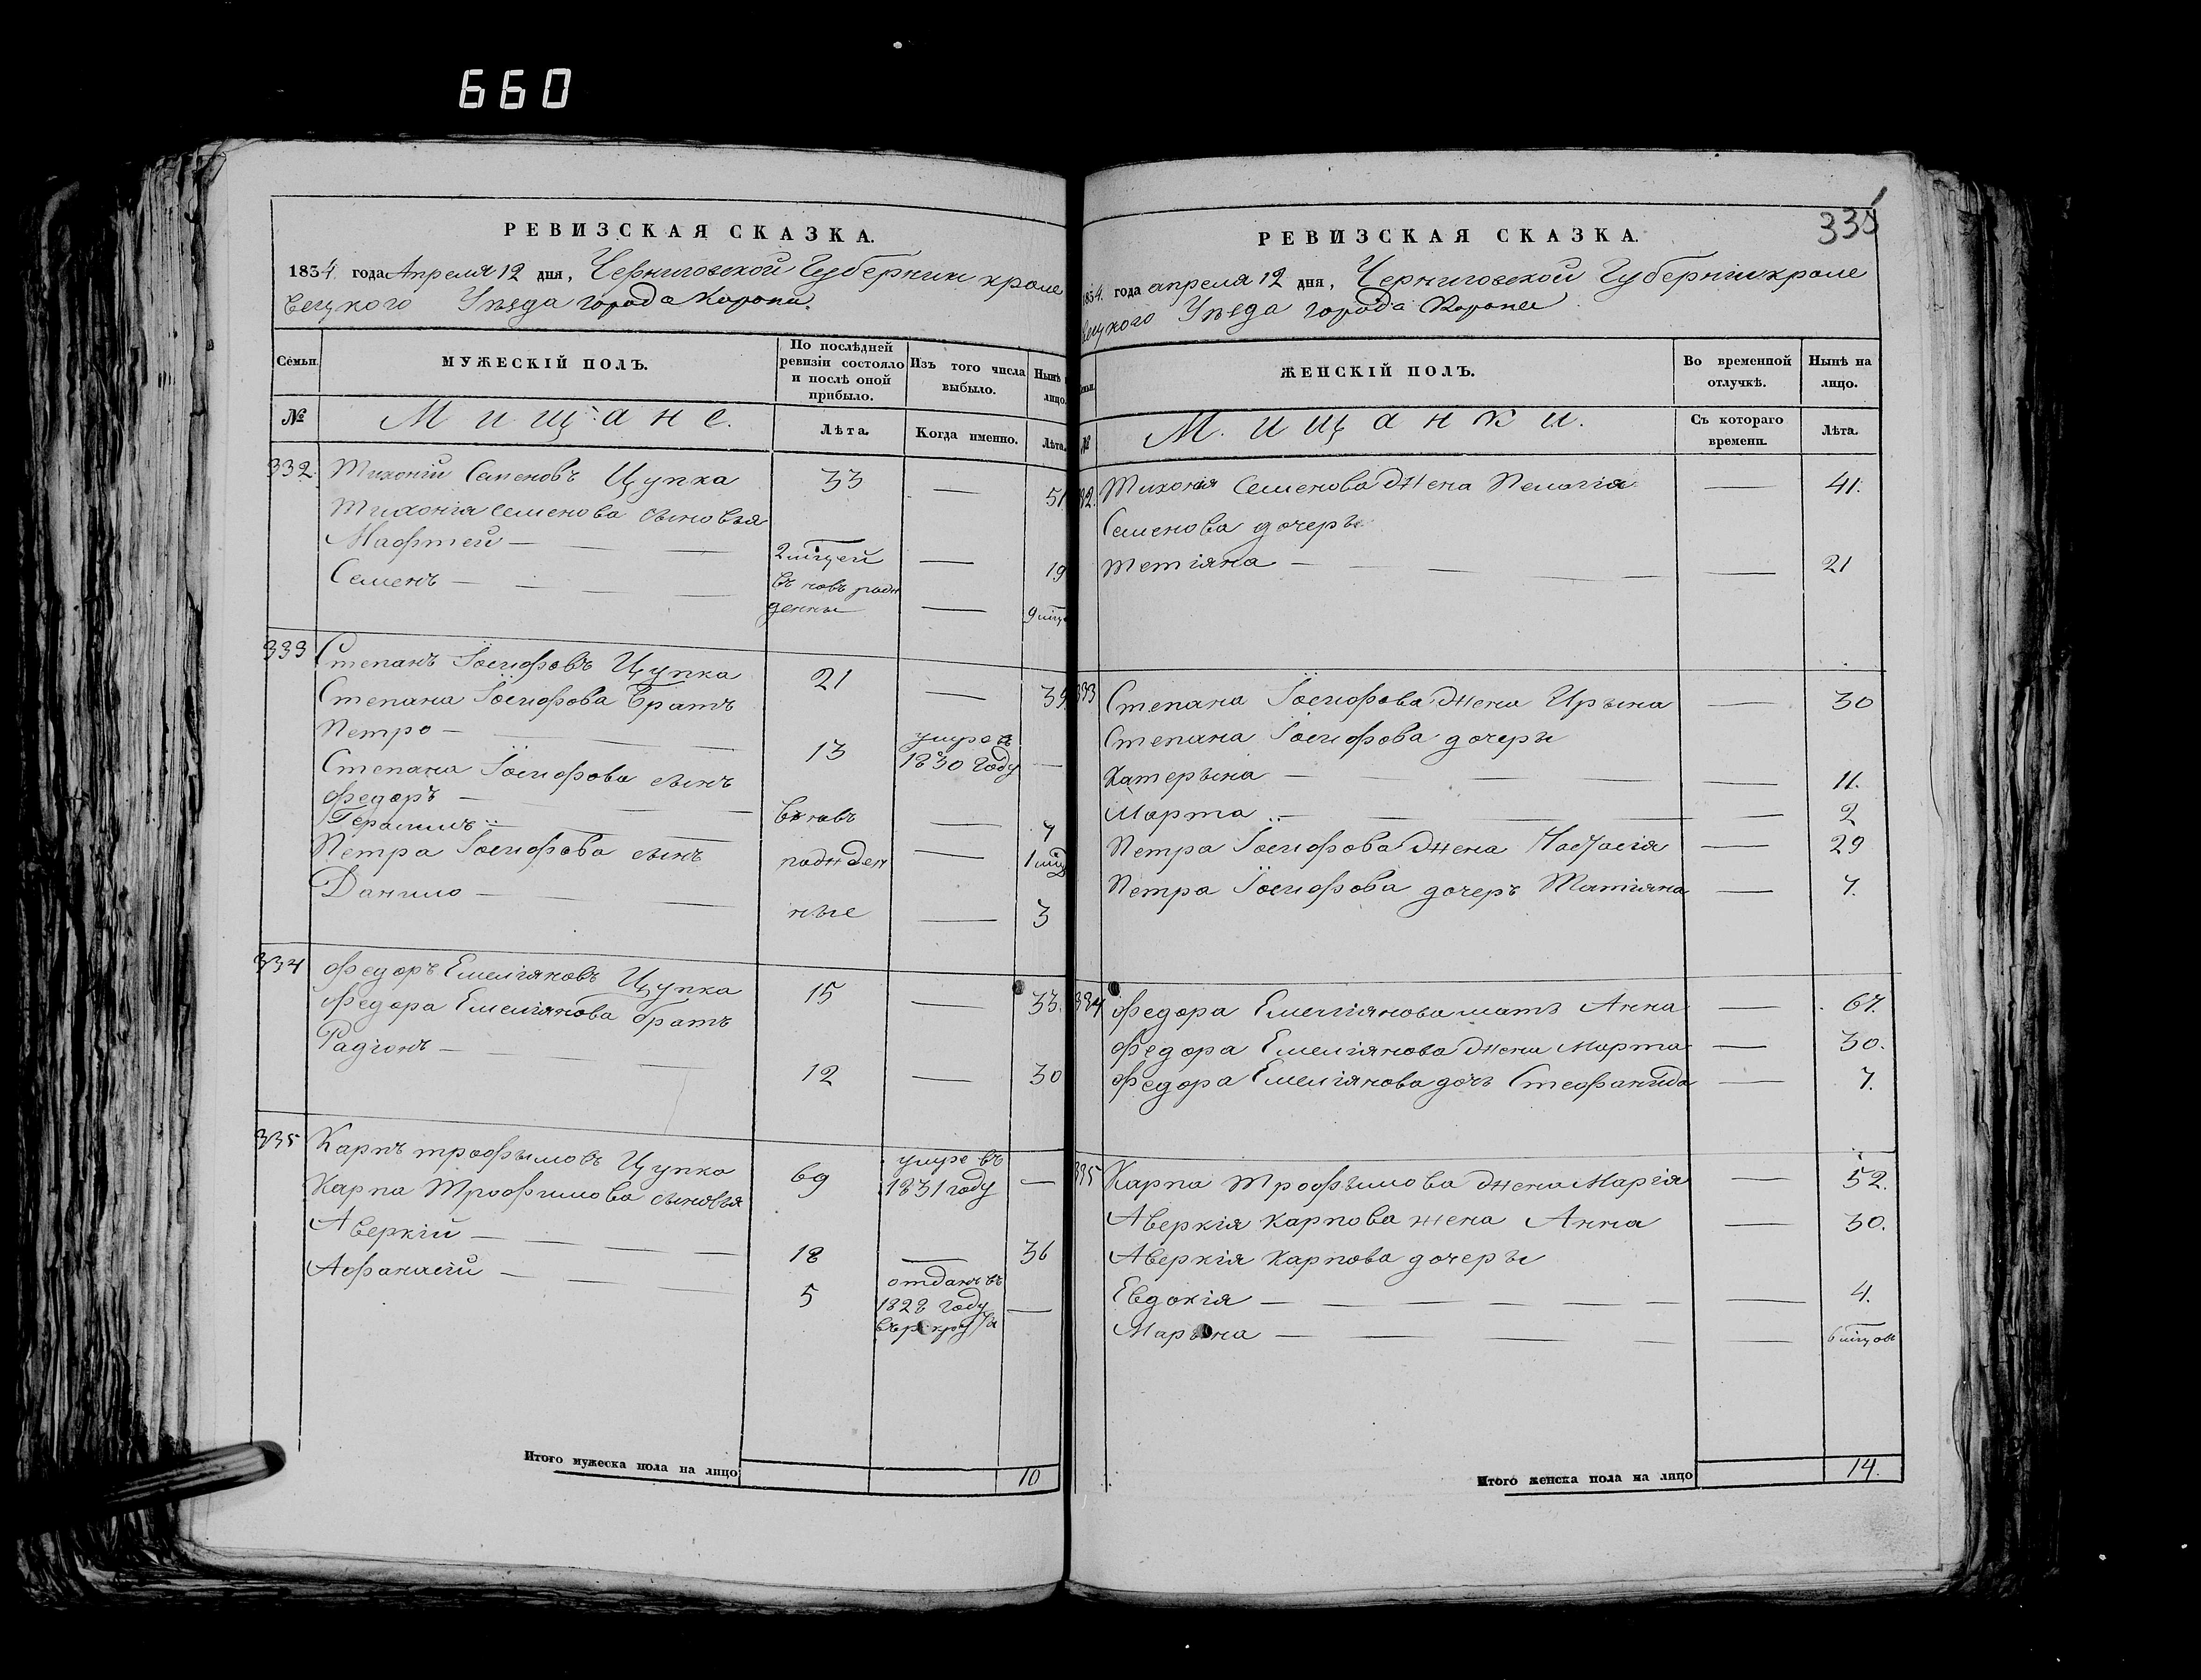 660
РЕВИЗСКАЯ СКАЗКА.
1834 года Апреля 12 дня, Черниговской Губернии кроле
вецкого Уѣзда города Коропа.
Семьи.
МУЖЕСКІЙ ПОЛЪ.
По послѣдней ревизіи состояло и послѣ оной прибыло.
Изъ того числа выбыло.
Нынѣ на лицо.
№
Мищане.
Лѣта.
Когда именно.
Лѣта.
332. Тихоній Семеновъ Цупка 33 — 51
Тихонія Семенова сыновья
Мафтей — 2 мцей — 19
Семенъ — въ новь рож
денны — 9 мцъ
333 Степанъ Іосифовъ Цупка 21 — 39.
Степана Іосифова братъ
Петро — 13 умре въ 1830 году —
Степана Іосифова сынъ
Федоръ — вновь — 7
Герасимъ — рожден — 1 мцъ
Петра Іосифова сынъ
Данило — ные — 3
334 Федоръ Емеліяновъ Цупка 15 — 33.
Федора Емеліянова братъ
Радіонъ — 12 — 30
335 Карпъ трофымовъ Цупка 69 умре въ 1831 году —
Карпа Трофимова сыновья
Аверкій — 18 — 36
Афанасій — 5 отданъ въ 1828 году въ рекруты —
Итого мужеска пола на лицо 10
335
РЕВИЗСКАЯ СКАЗКА.
1834. года апреля 12 дня, Черниговской Губерніи кроле
вецкого Уѣзда города Коропа
Семьи.
ЖЕНСКІЙ ПОЛЪ.
Во временной отлучкѣ.
Нынѣ на лицо.
№
Мищанки.
Съ котораго времени.
Лѣта.
332. Тихонія Семенова жена Пелагія — 41.
Семенова дочерь
Тетіяна — 21
333 Степана Іосифова жена Ирына — 30
Степана Іосифова дочеры
Катерына — 11.
Марта — 2
Петра Іосифова жена Настасія — 29
Петра Іосифова дочерь Татіяна — 7.
334 Федора Емеліянова мать Анна — 67.
Федора Емеліянова жена Марта — 30.
Федора Емеліянова дочь Стефанида — 7.
335 Карпа Трофымова жена Марія — 52.
Аверкія Карпова жена Анна — 30.
Аверкія Карпова дочеры
Евдокія — 4.
Марына — 6 мцовъ
Итого женска пола на лицо 14.